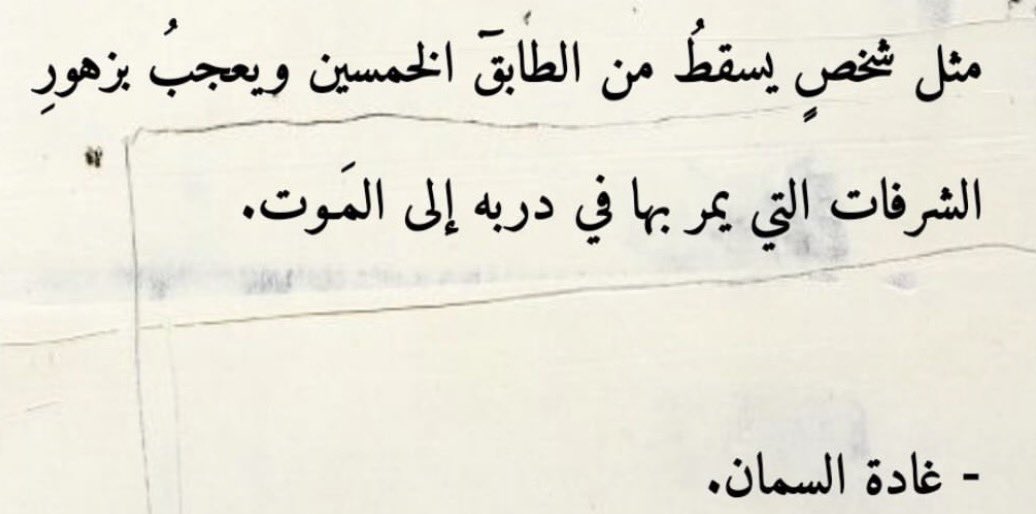 مثل شخصٍ يسقطُ من الطابقَ الخمسين ويعجبُ بزهورِ
الشرفات التي يمر بها في دربه إلى المَوت.
- غادة السمان.